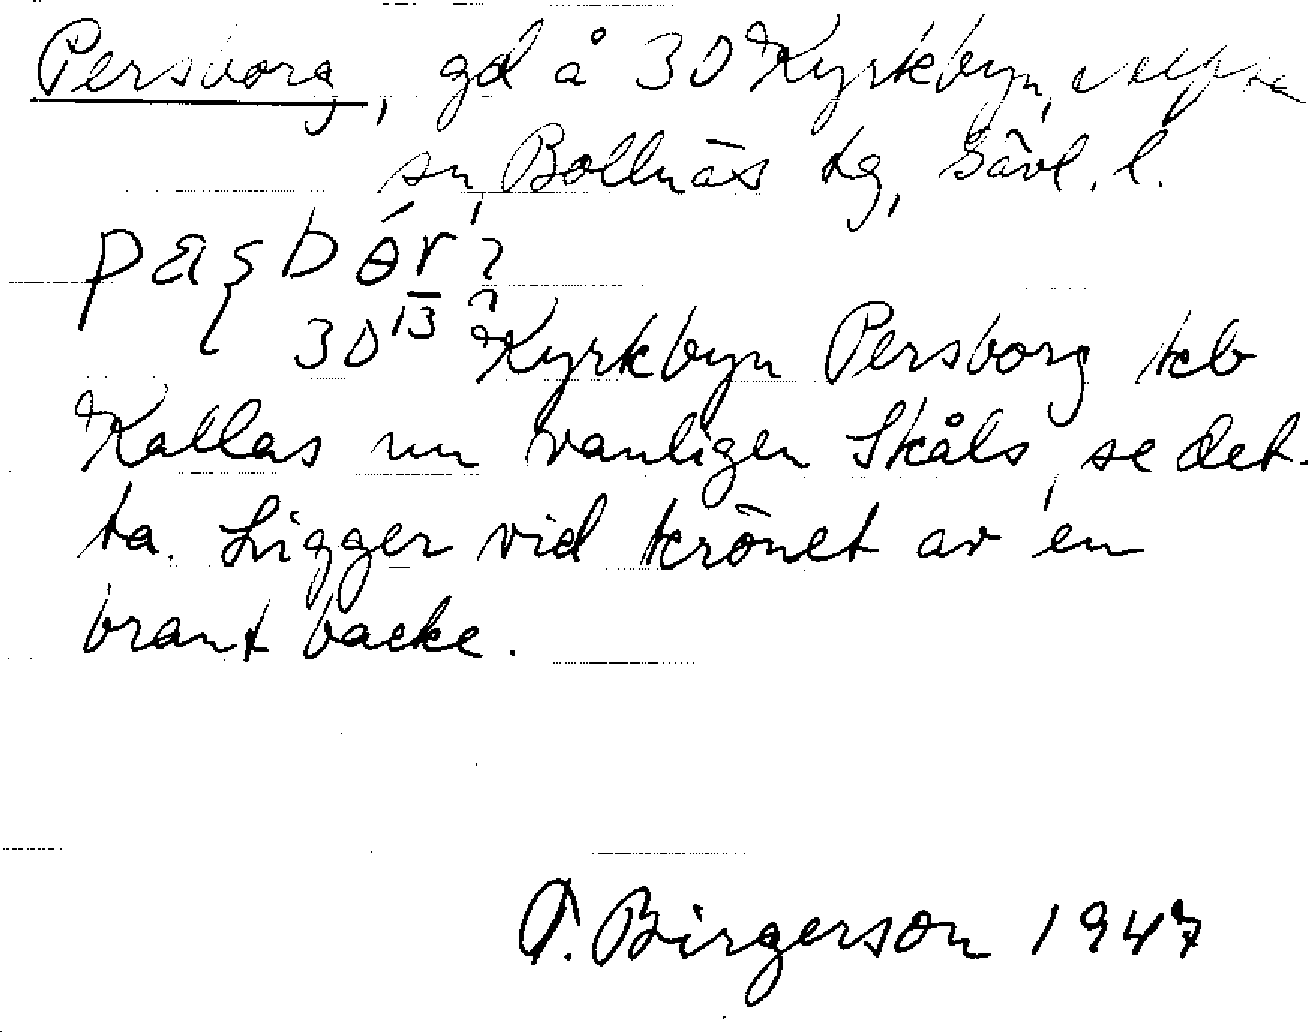 Persborg, gd å 30 Kyrkbyn,
sn, Bollnäs tg, Gävl. l.
30 13 Kyrkbyn Persborg kcb
Kallas nu vanligen Skåls, se det-
ta. Ligger vid krönet av en
brant backe.
Birgerson 1947